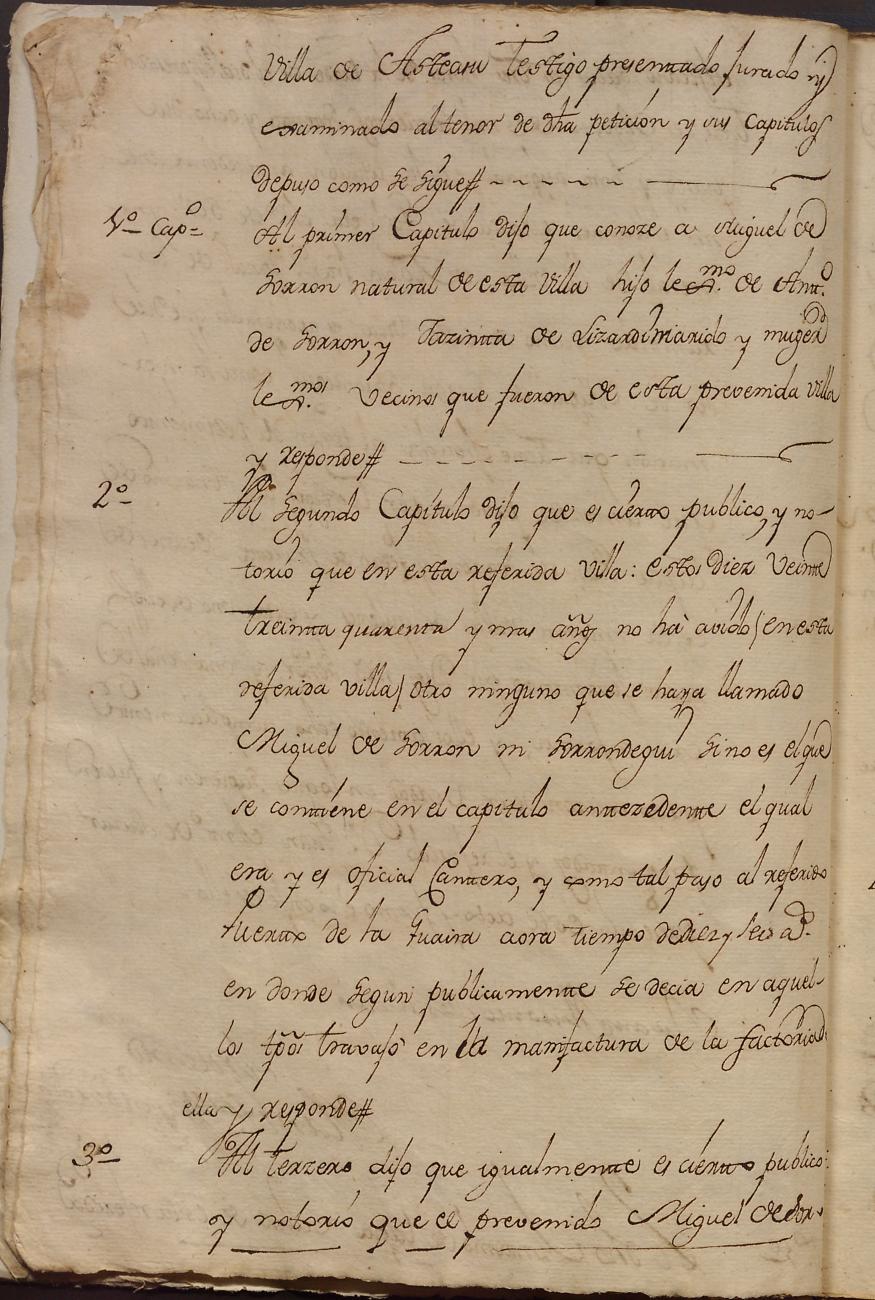 Villa de Asteasu testigo presenttado jurado y
examinado al tenor de dha petición y sus Capitulos
depuso como se sigue#
1º Capº=
Al primer Capitulo dijo que conoze a Miguel de
Sorron natural de esta Villa hijo lexmo. de Antt.º
de Sorron, y Jazintta de Lizardi Marido y muger
lexmos. Vecinos que fueron de esta prevenida Villa
y responde#
2º
Al Segundo Capítulo dijo que es cierto publico, y no-
torio que en esta referida Villa: estos diez Veintte
treintta quarenta y mas años no ha avido/en esta
referida villa/otro ninguno que se haya llamado
Miguel de Sorron ni Sorrondegui Sino es el que
se conttiene en el capitulo anttezedentte el qual
era y es oficial Canttero, y como tal paso al referido
Puertto de la Guaira aora tiempo de diez y seis as.
en donde Segun publicamentte se decia en aquel-
los tpõs travajo en la manifactura de la factoria de
ella y responde#
3º
Al terzero dijo que igualmentte es cierto publico:
y notorio que el prevenido Miguel de Sor-